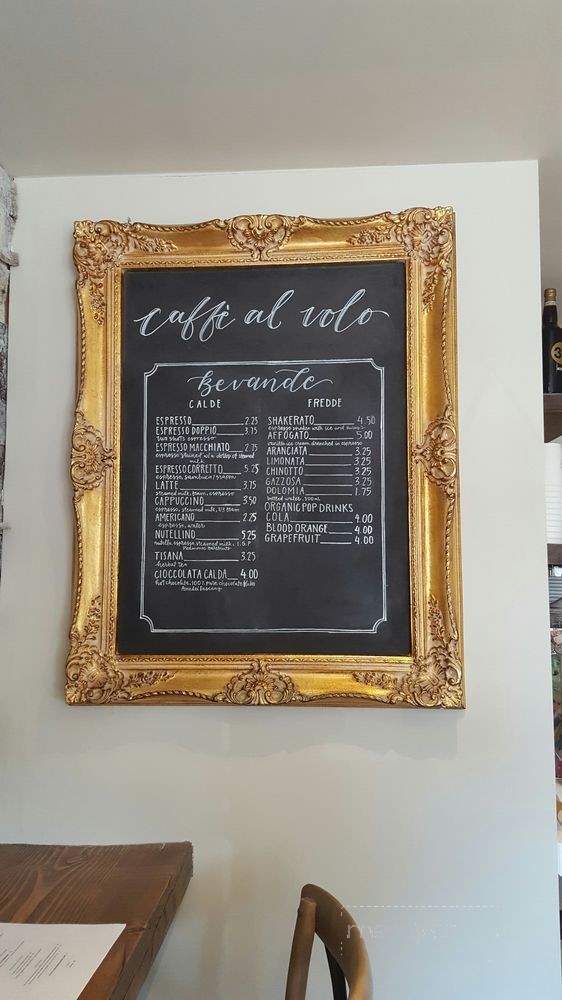 caffè al volo
Bevande
CALDE
ESPRESSO 2.25
ESPRESSO DOPPIO 3.75
two shots espresso
ESPRESSO MACCHIATO 2.75
espresso stained w/ a dollop of steamed
milk
ESPRESSO CORRETTO 5.25
espresso, sambuca/grappa
LATTE 3.75
steamed milk, foam, espresso
CAPPUCCINO 3.50
espresso, steamed milk, 1/3 foam
AMERICANO 2.25
espresso, water
NUTELLINO 5.25
nutella, espresso, steamed milk, I.G.P
Piedmonte hazelnuts
TISANA 3.25
herbal tea
CIOCCOLATA CALDA 4.00
hot chocolate, 100% pure chocolate
Amedei Tuscany
FREDDE
SHAKERATO 4.50
espresso shaken with ice and
AFFOGATO 5.00
vanilla ice cream drenched in espresso
ARANCIATA 3.25
LIMONATA 3.25
CHINOTTO 3.25
GAZZOSA 3.25
DOLOMIA 1.75
bottled water, 500ml
ORGANIC POP DRINKS
COLA 4.00
BLOOD ORANGE 4.00
GRAPEFRUIT 4.00